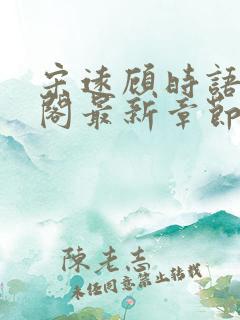 宋遠顧時語
閣最新章節
陳老志
未经同意禁止转载